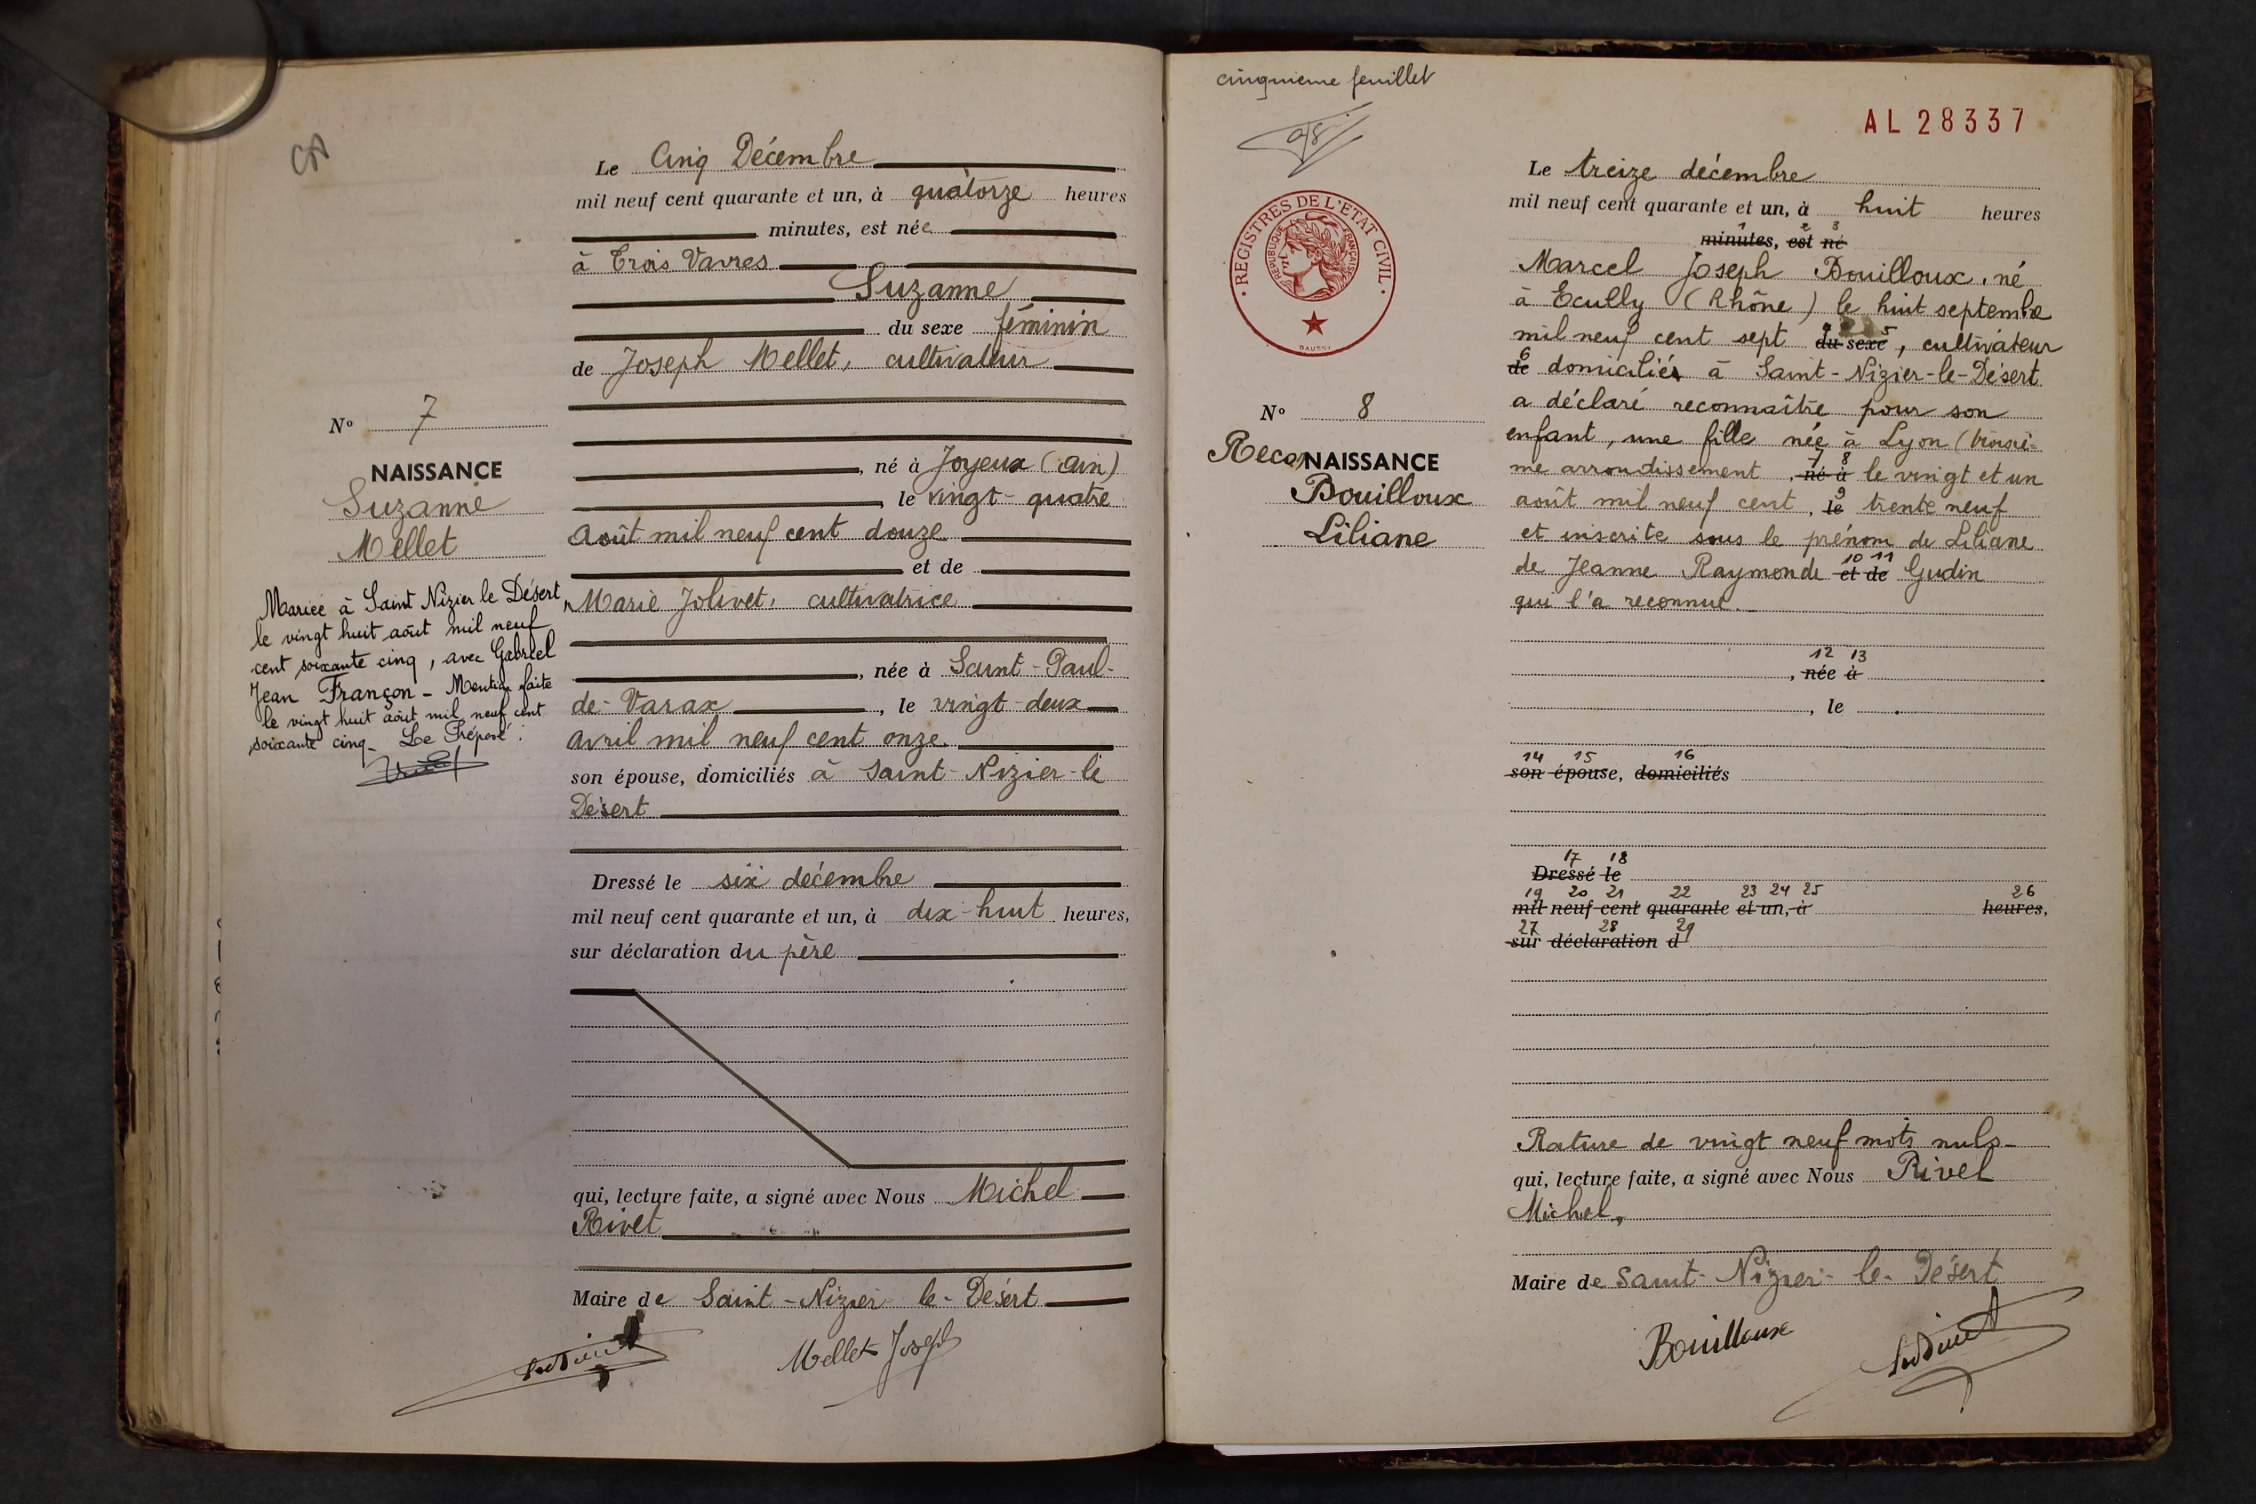 Le Cinq Décembre
mil neuf cent quarante et un, à quatorze heures
minutes, est née
à Trois Vavres
Suzanne
du sexe féminin
de Joseph Mellet, cultivateur
N° 7
NAISSANCE
Suzanne
Mellet
, né à Joyeux (Ain)
, le vingt-quatre
Août mil neuf cent douze
et de
Marie Jolivet, cultivatrice
, née à Saint-Paul-
de-Varax, le vingt-deux
avril mil neuf cent onze.
son épouse, domiciliés à Saint-Nizier-le
Désert
Mariée à Saint Nizier le Désert,
le vingt huit août mil neuf
cent soixante cinq, avec Gabriel
Jean Françon - Mention faite
le vingt huit août mil neuf cent
soixante cinq - Le Préposé :
Dressé le six décembre
mil neuf cent quarante et un, à dix-huit heures,
sur déclaration du père
qui, lecture faite, a signé avec Nous Michel
Rivet
Maire de Saint-Nizier-le-Désert
Mellet Joseph
cinquieme feuillet
AL 28337
REGISTRES DE L'ETAT CIVIL
REPUBLIQUE FRANÇAISE
N° 8
RecoNNAISSANCE
Bouilloux
Liliane
Le treize décembre
mil neuf cent quarante et un, à huit heures
1 2 3
minutes, est né
Marcel Joseph Bouilloux, né
à Ecully (Rhône) le huit septembre
mil neuf cent sept du sexe, cultivateur
de domicilié à Saint-Nizier-le-Désert
a déclaré reconnaître pour son
enfant, une fille née à Lyon (troisiè-
me arrondissement, né à le vingt et un
août mil neuf cent, le trente neuf
et inscrite sous le prénom de Liliane
de Jeanne Raymonde et de Gudin
qui l'a reconnue.
12 13
, née à
, le
14 15 16
son épouse, domiciliés
17 18
Dressé le
19 20 21 22 23 24 25 26
mil neuf cent quarante et un, à heures,
27 28 29
sur déclaration d
Rature de vingt neuf mots nuls-
qui, lecture faite, a signé avec Nous Rivet
Michel,
Maire de Saint-Nizier-le-Désert
Bouilloux